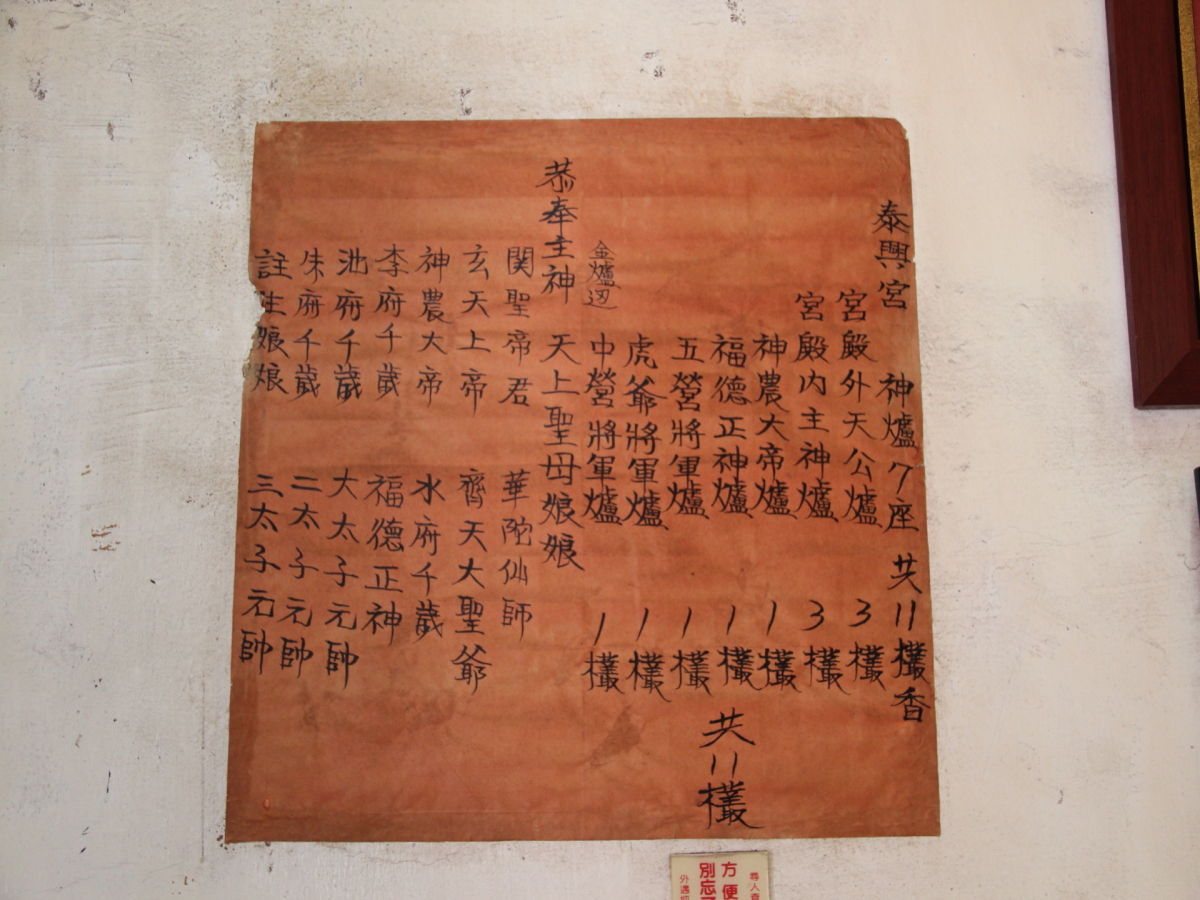 泰興宮 神爐7座 共11欉香
宮殿外天公爐 3欉
宮殿內主神爐 3欉
神農大帝爐 1欉
福德正神爐 1欉
五營將軍爐 1欉
虎爺將軍爐 1欉
金爐辺 中營將軍爐 1欉
共11欉
恭奉主神 天上聖母娘娘
関聖帝君 華陀仙師
玄天上帝 齊天大聖爺
神農大帝 水府千歲
李府千歲 福德正神
池府千歲 大太子元帥
朱府千歲 二太子元帥
註生娘娘 三太子元帥
尋人
方便
別忘
外遇